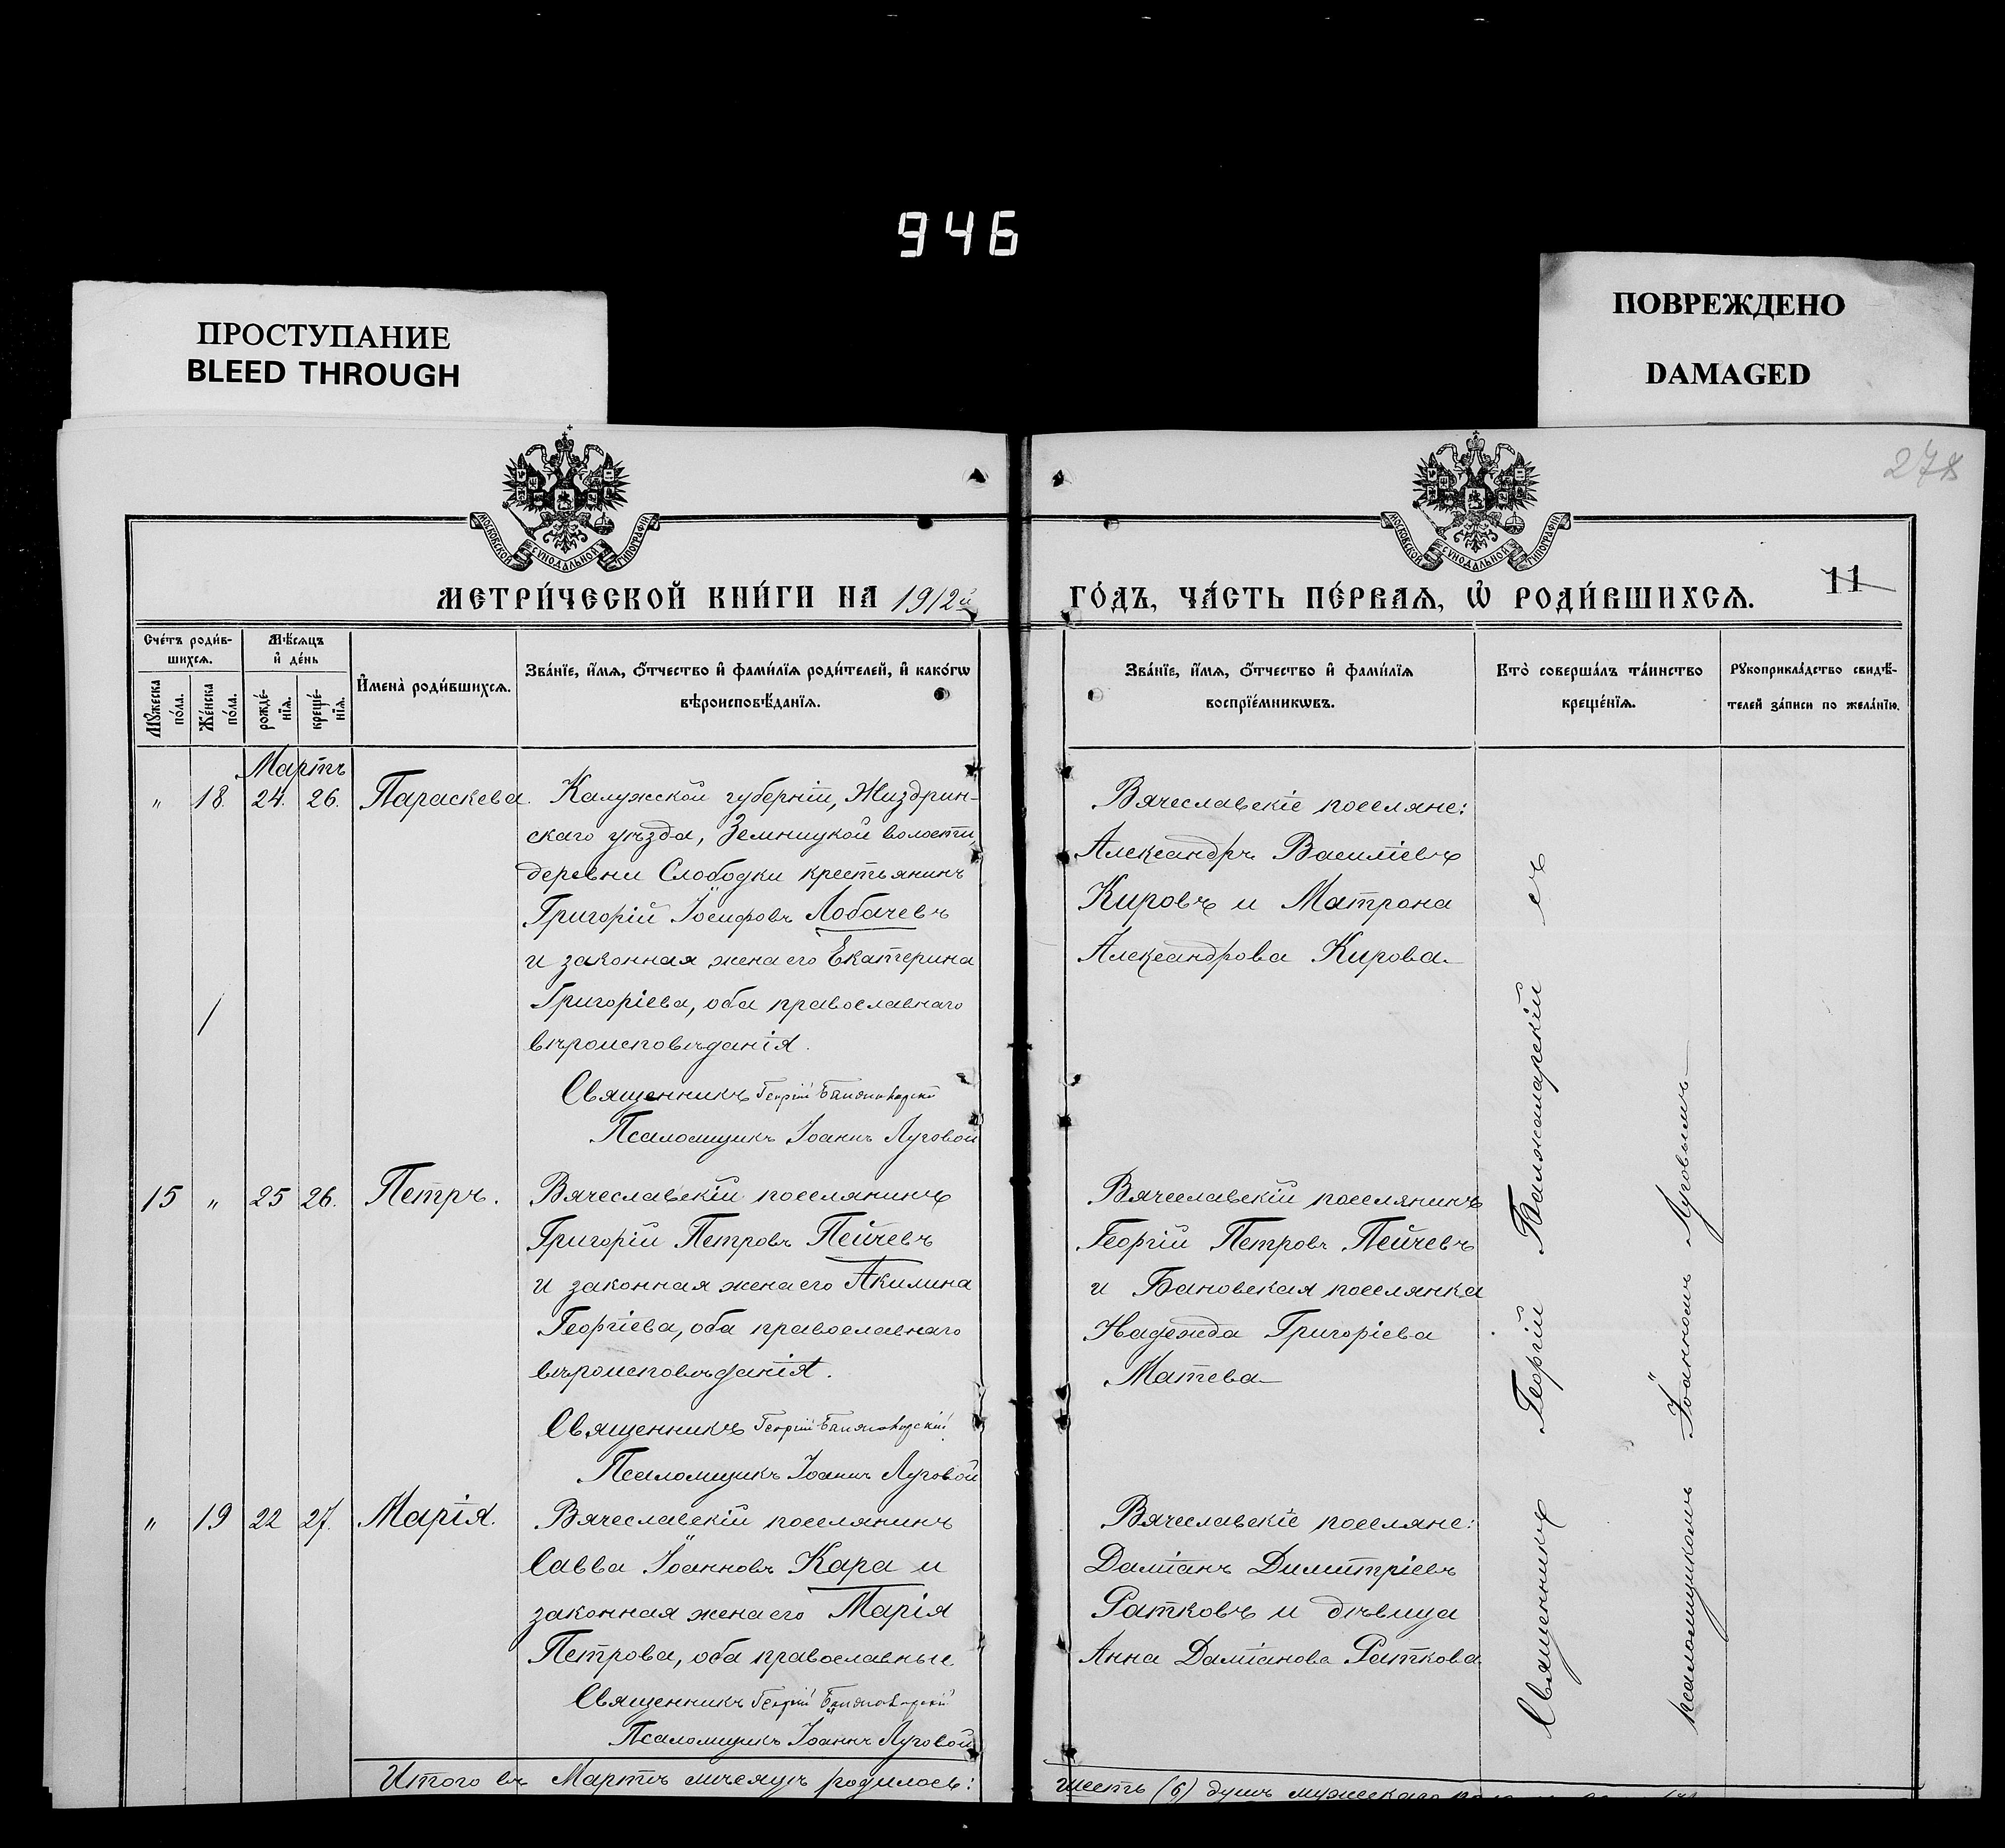 946
ПРОСТУПАНИЕ
BLEED THROUGH
ПОВРЕЖДЕНО
DAMAGED
278
МОСКОВСКОЙ СѴНОДАЛЬНОЙ ТИПОГРАФІИ
МОСКОВСКОЙ СѴНОДАЛЬНОЙ ТИПОГРАФІИ
МЕТРИ́ЧЕСКОЙ КНИ́ГИ НА 1912й
ГО́ДЪ, ЧА́СТЬ ПЕ́РВАѦ, Ѡ҆ РОДИ́ВШИХСѦ.
11
Сче́тъ роди́в-
шихсѧ.
Мѣ́сѧцъ
и҆ де́нь
Мꙋ́жеска
по́ла.
Же́нска
по́ла.
рожде́-
нїѧ.
креще́-
нїѧ.
И҆мена̀ роди́вшихсѧ.
Зва́нїе, и҆́мѧ, ѻ҆́тчество и҆ фами́лїѧ роди́телей, и҆ како́гѡ
вѣроисповѣ́данїѧ.
Зва́нїе, и҆́мѧ, ѻ҆́тчество и҆ фами́лїѧ
воспрїе́мникѡвъ.
Кто̀ соверша́лъ та́инство
креще́нїѧ.
Рꙋкоприкла́дство свидѣ́-
телей за́писи по жела́нїю.
Мартъ
" 18. 24. 26. Параскева. Калужской губерніи, Жиздрин-
скаго уѣзда, Земницкой волости,
деревни Слободки крестьянинъ
Григорій Іосифовъ Лобачевъ
и законная жена его Екатерина
Григоріева, оба православнаго
вѣроисповѣданія.
Священникъ Георгій Балжаларскій
Псаломщикъ Іоаннъ Луговой
Вячеславскіе поселяне:
Александръ Василіевъ
Кировъ и Матрона
Александрова Кирова
15 " 25 26. Петръ. Вячеславскій поселянинъ
Григорій Петровъ Пейчевъ
и законная жена его Акилина
Георгіева, оба православнаго
вѣроисповѣданія.
Священникъ Георгій Балжаларскій
Псаломщикъ Іоаннъ Луговой
Вячеславскій поселянинъ
Георгій Петровъ Пейчевъ
и Бановская поселянка
Надежда Григоріева
Матева
" 19 22 27. Марія. Вячеславскій поселянинъ
Савва Іоанновъ Кара и
законная жена его Марія
Петрова, оба православные
Священникъ Георгій Балжаларскій
Псаломщикъ Іоаннъ Луговой
Вячеславскіе поселяне:
Даміанъ Димитріевъ
Ратковъ и дѣвица
Анна Даміанова Раткова
Священникъ Георгій Балжаларскій съ
псаломщикомъ Іоанномъ Луговымъ
Итого въ Мартѣ мѣсяцѣ родилось:
шесть (6) душъ мужескаго